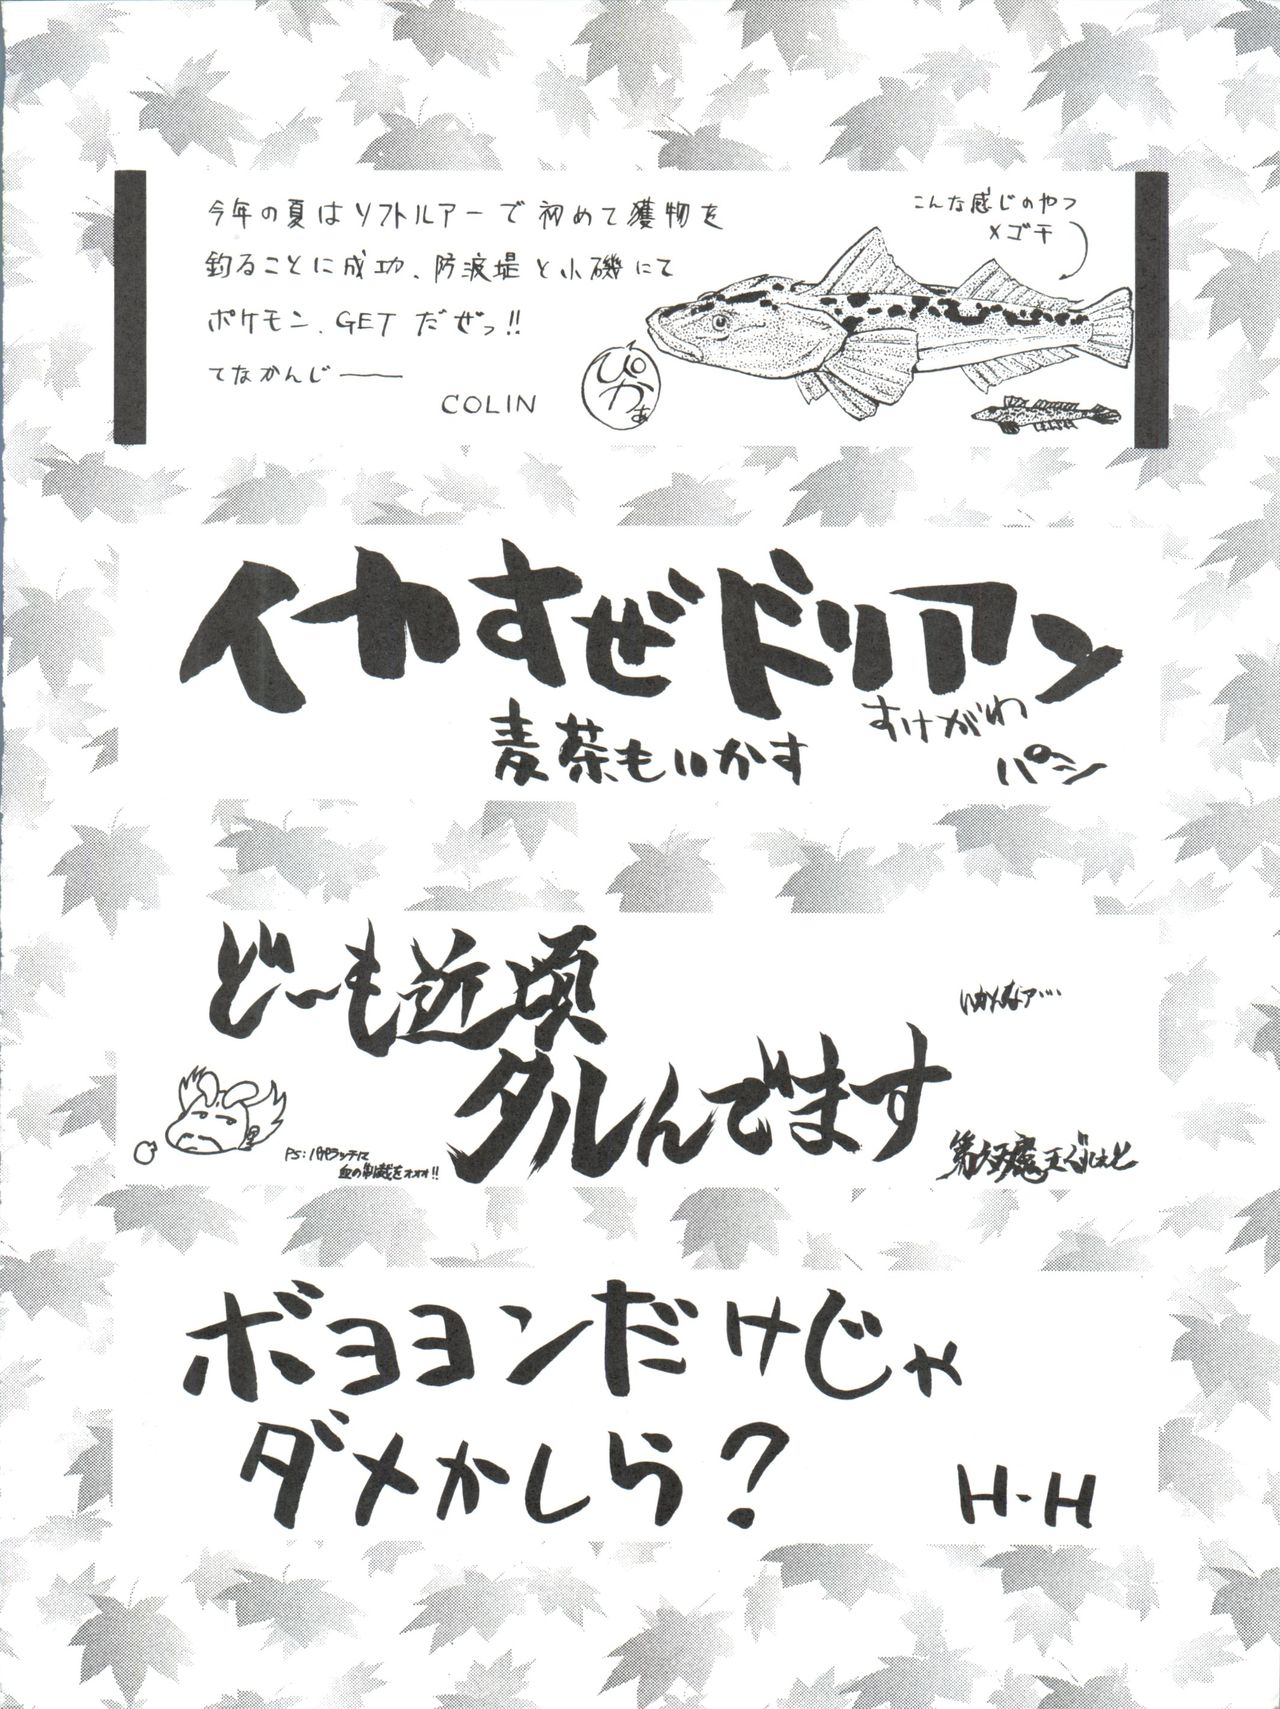 今年の夏はソフトルアーで初めて獲物を
釣ることに成功、防波堤と小磯にて
ポケモン、GETだぜっ!!
てなかんじ――
COLIN
こんな感じのやつ
メゴチ
ぴかぁ
イカすぜドリアン
麦茶もいかす
すけがわ
パン
どーも近頃
タルんでます
いかんなァ…
血の制裁をォォォ!!
ボヨヨンだけじゃ
ダメかしら?
H-H